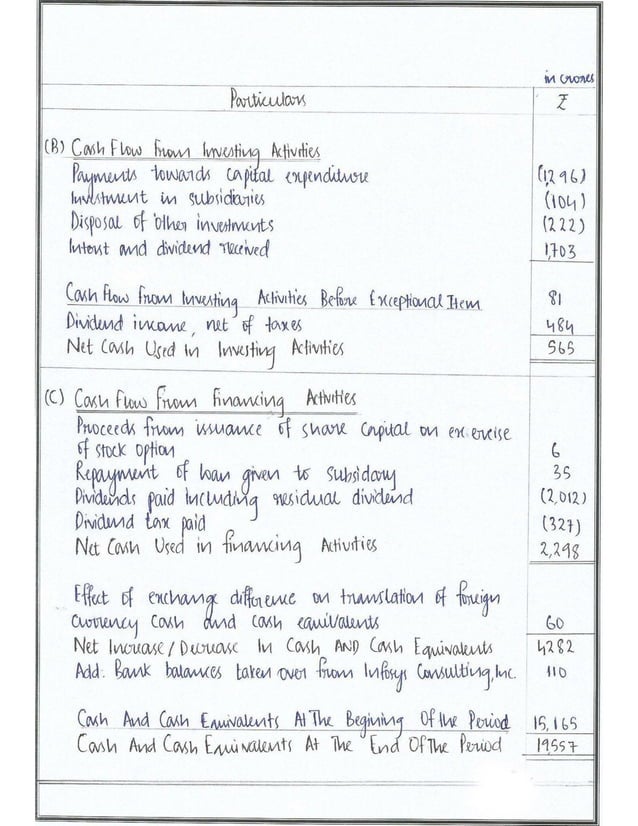 in crores
Particulars ₹
(B) Cash Flow From Investing Activities
Payments towards capital expenditure (1,296)
Investment in subsidiaries (104)
Disposal of other investments (222)
Interst and dividend received 1,703
Cash Flow From Investing Activities Before Exceptional Item 81
Dividend income, net of taxes 484
Net Cash Used in Investing Activities 565
(C) Cash Flow From Financing Activities
Proceeds from issuance of share capital on exercise
of stock option 6
Repayment of loan given to subsidary 35
Dividends paid including residual dividend (2,012)
Dividend tax paid (327)
Net Cash Used in financing Activities 2,298
Effect of exchange difference on translation of foreign
currency cash and cash equivalents 60
Net Increase/Decrease In Cash AND Cash Equivalents 4282
Add: Bank balances taken over from Infosys Consulting, Inc. 110
Cash And Cash Equivalents At The Begining Of the Period 15,165
Cash And Cash Equivalents At The End Of The Period 19,557